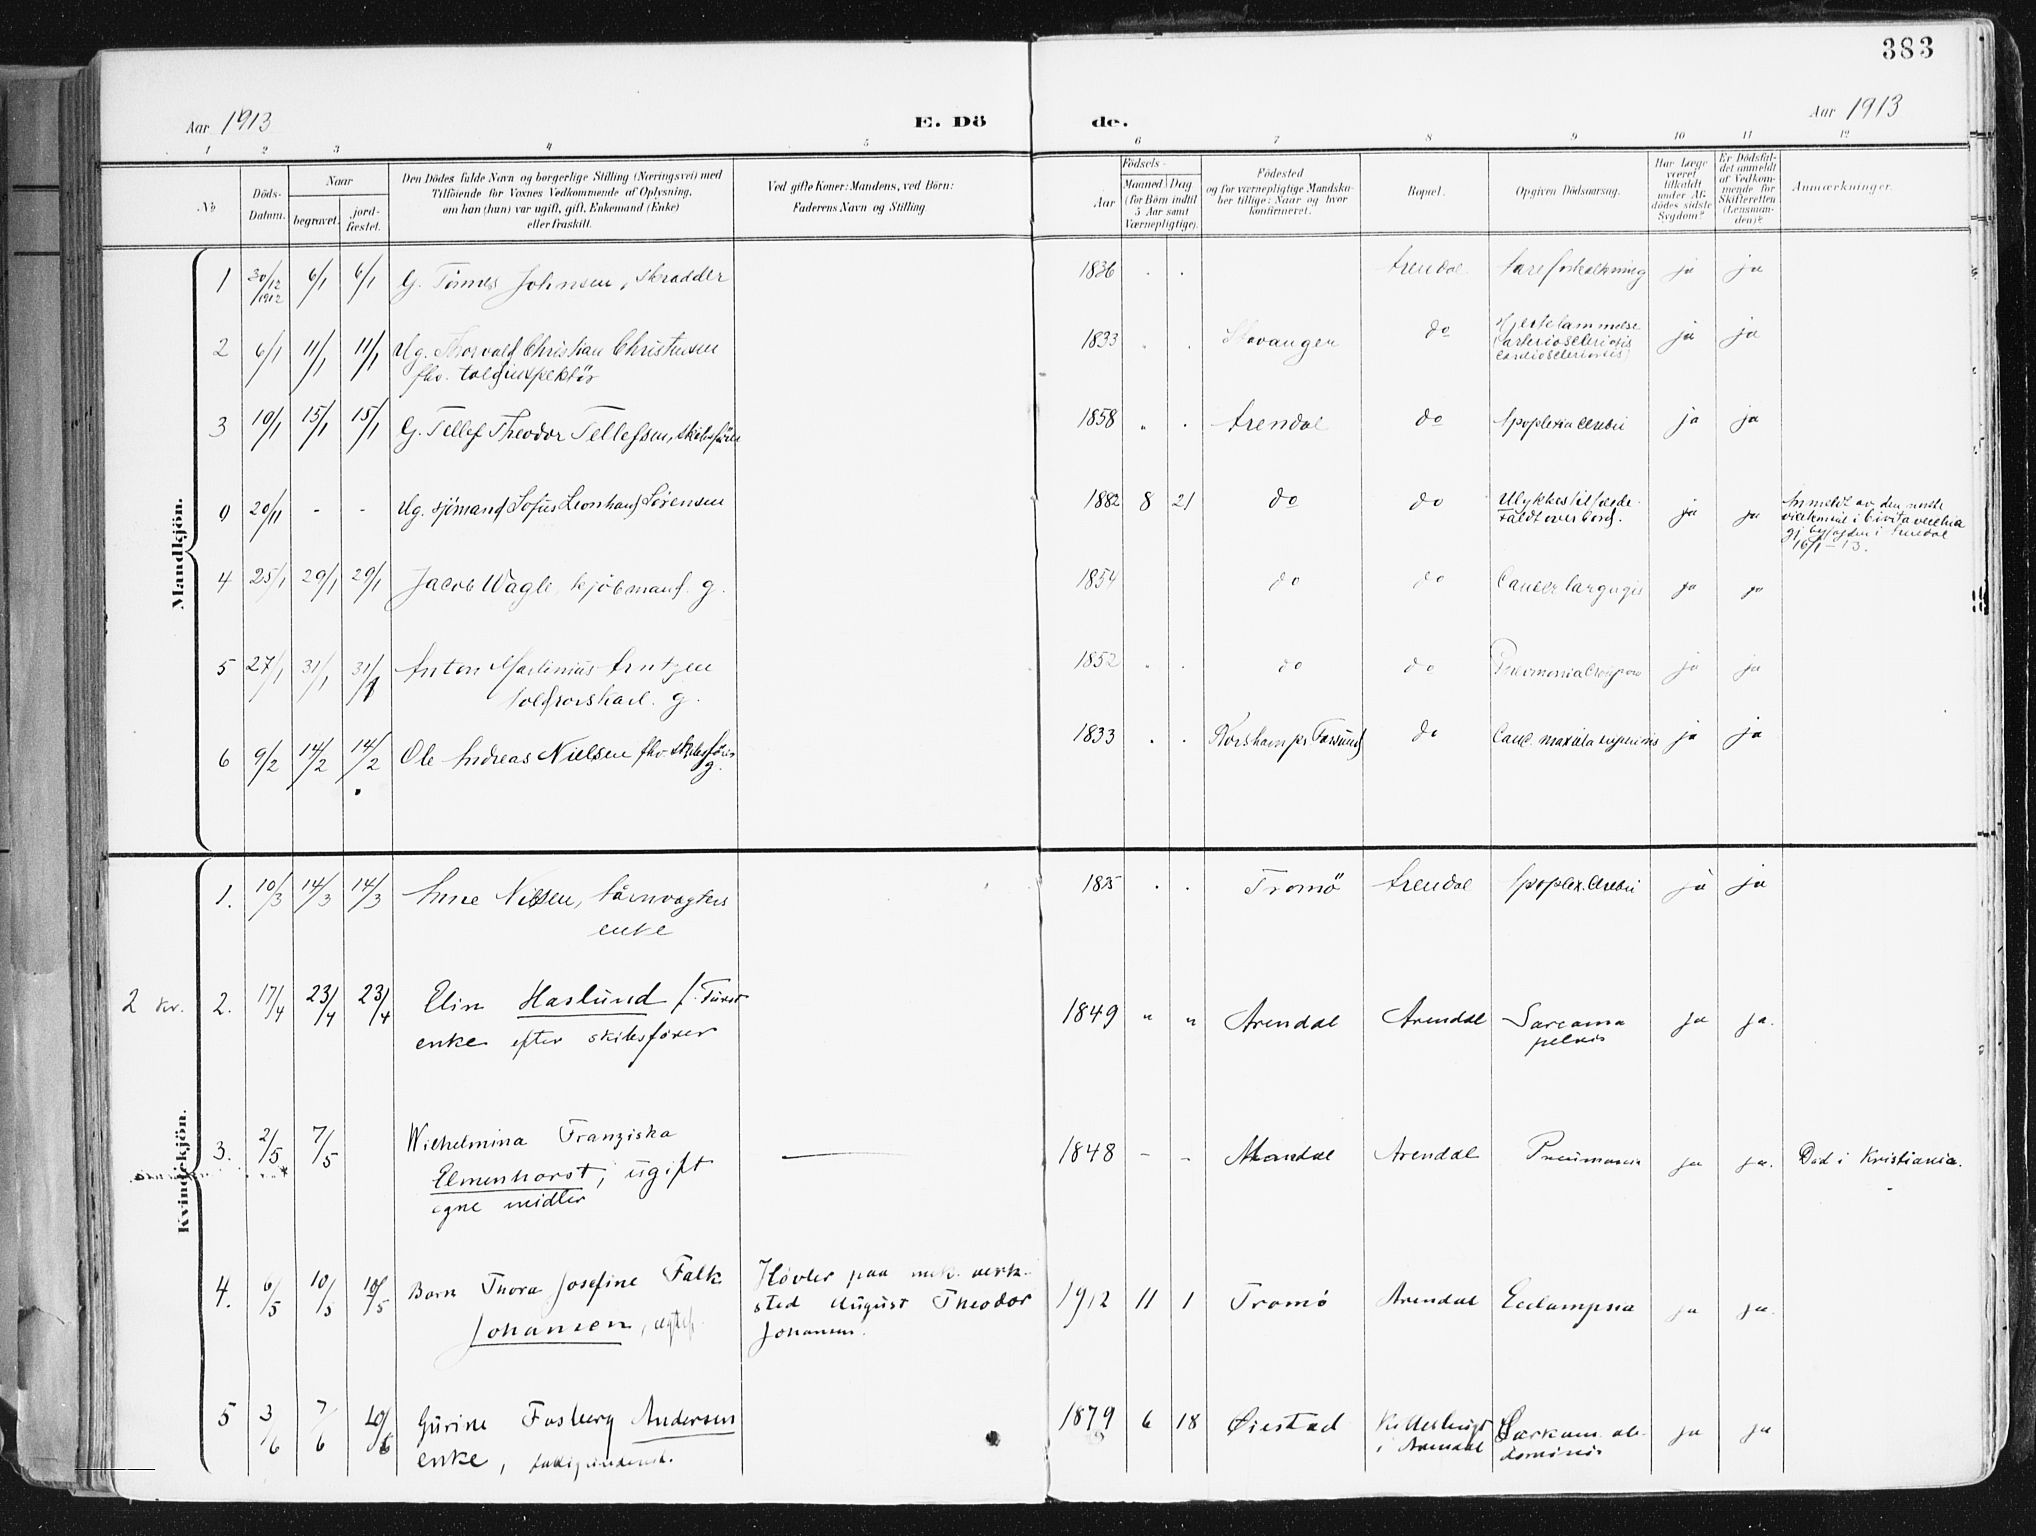 383
Aar 1913
E. Dö
de.
Aar 1913
1 2 3 4 5 6 7 8 9 10 11 12
No
Döds-Datum.
Naar
begravet.
jord-fæstet.
Den Dödes fulde Navn og borgerlige Stilling (Næringsvei) med
Tilföiende for Voxnes Vedkommende af Oplysning,
om han (hun) var ugift, gift, Enkemand (Enke)
eller fraskilt.
Ved gifte Koner: Mandens, ved Börn:
Faderens Navn og Stilling
Födsels-
Aar
Maaned Dag
(for Börn indtil
5 Aar samt
Værnepligtige).
Födested
og for værnepligtige Mandska-
ber tillige: Naar og hvor
konfirmeret.
Bopæl.
Opgiven Dödsaarsag.
Har Læge
været
tilkaldt
under Af-
dödes sidste
Sygdom?
Er Dödsfal-
det anmeldt
af Vedkom-
mende for
Skifteretten
(Lensman-
den)?
Anmærkninger.
Mandkjön.
1 30/12 1912 6/1 6/1 G. Tönnes Johnsen, skradder 1836 Arendal ja ja
2 6/1 11/1 11/1 Ug. Thorvald Christian Christensen
fhv. toldinspektör
1833 Stavanger do Hjertelammelse
ja ja
3 10/1 15/1 15/1 G. Tellef Theodor Tellefsen, skibsförer 1858 Arendal do Apoplexia cerebri ja ja
9 20/11 - - Ug. sjömand Sofus Leonhard Sörensen 1882 8 21 do do Ulykkestilfælde.
Faldt overbord. ja ja
Anmeldt av den norske
i Civitavecchia
i Arendal
16/1-13.
4 25/1 29/1 29/1 Jacob Wagle, kjöbmand. g. 1854 do do Cancer ja ja
5 27/1 31/1 31/1 Anton Martinius Arntzen
g.
1852 do do ja ja
6 9/2 14/2 14/2 Ole Andreas Nielsen fhv. skibsförer
g.
1833 Korshamn pr Farsund do Canc. maxilla superioris ja ja
Kvindekjön.
1. 10/3 14/3 14/3 Anne Nielsen, tårnvagters
enke
Tromö Arendal Apoplex. cerebri ja ja
2 kr. 2. 17/4 23/4 23/4 Elin Haslund f. Fürst
enke efter skibsförer
1849 " " Arendal Arendal Sarcoma
pelvis ja ja.
3. 2/5 7/5 Wilhelmina Franziska
Elmenhorst, ugift
egne midler
1848 - - Arendal Pneumonia ja ja. Död i Kristiania.
4. 6/5 10/5 10/5 Barn Thora Josefine Falk
Johansen,
Hövler paa mek. verk-
sted August Theodor
Johansen.
1912 11 1 Tromö Arendal Eclampsia ja ja.
5 3/6 7/6 10/6 Gurine Fosberg Andersen
enke,
1879 6 18 Öiestad
i Arendal
Sarkom ab-
dominis ja ja